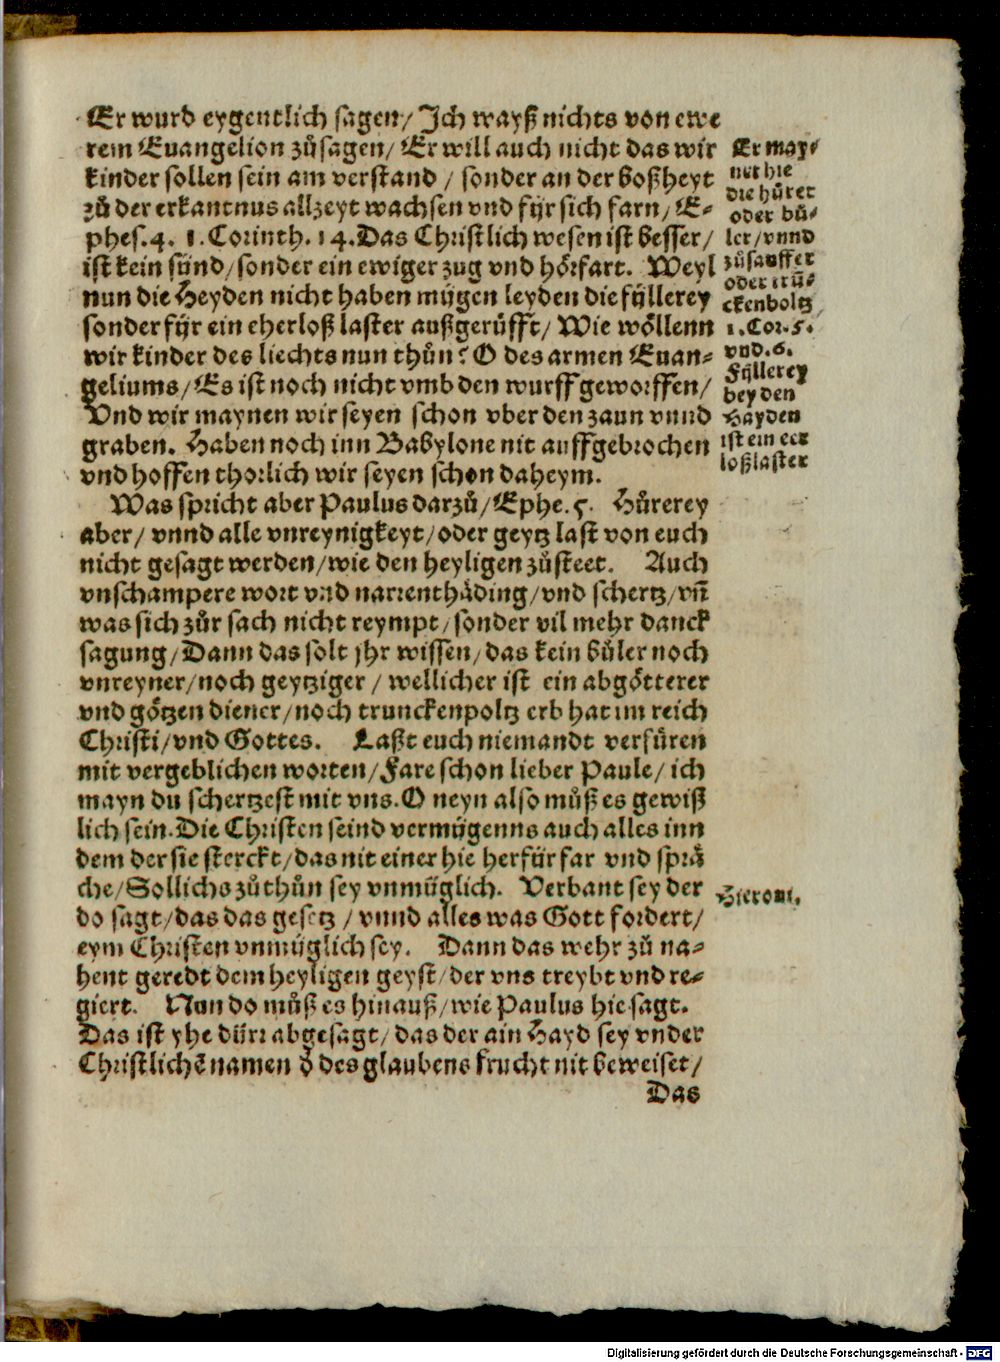 Er wurd eygentlich sagen/ Jch wayß nichts von ewe
rem Euangelion zůsagen/ Er will auch nicht das wir
kinder sollen sein am verstand / sonder an der boßheyt
zů der erkantnus allzeyt wachsen vnd fyr sich farn/ E-
phes.4. 1. Corinth. 14. Das Christlich wesen ist besser/
ist kein sünd/ sonder ein ewiger zug vnd hörfart. Weyl
nun die Heyden nicht haben mügen leyden die fyllerey
sonder fyr ein eherloß laster außgerüfft/ Wie wöllenn
wir kinder des liechts nun thůn? O des armen Euan-
geliums/ Es ist noch nicht vmb den wurff geworffen/
Vnd wir maynen wir seyen schon vber den zaun vnnd
graben. Haben noch inn Babylone nit auffgebrochen
vnd hoffen thorlich wir seyen schon daheym.
Was spricht aber Paulus darzů/ Ephe. 5. Hůrerey
aber/ vnnd alle vnreynigkeyt/ oder geytz last von euch
nicht gesagt werden/ wie den heyligen zůsteet. Auch
vnschampere wort vnd narrenthäding/ vnd schertz/ vñ
was sich zůr sach nicht reympt/ sonder vil mehr danck
sagung/ Dann das solt jhr wissen/ das kein bůler noch
vnreyner/ noch geytziger / wellicher ist ein abgötterer
vnd götzen diener/ noch trunckenpoltz erb hat im reich
Christi/ vnd Gottes. Laßt euch niemandt verfüren
mit vergeblichen worten/ Fare schon lieber Paule/ ich
mayn du schertzest mit vns. O neyn also můß es gewiß
lich sein. Die Christen seind vermügenns auch alles inn
dem der sie sterckt/ das nit einer hie herfür far vnd sprä
che/ Sollichs zůthůn sey vnmüglich. Verbant sey der
do sagt/ das das gesetz / vnnd alles was Gott fordert/
eym Christen vnmüglich sey. Dann das wehr zů na-
hent geredt dem heyligen geyst/ der vns treybt vnd re-
giert. Nun do můß es hinauß/ wie Paulus hie sagt.
Das ist yhe dürr abgesagt/ das der ain Hayd sey vnder
Christlichē namen d̄ des glaubens frucht nit beweiset/
Das
Er may-
net hie
die hůrer
oder bů-
ler/ vnnd
zůsauffer
oder trů-
ckenboltz
1. Cor. 5.
vnd. 6.
Fyllerey
bey den
Hayden
ist ein eer
loß laster
Hieroni.
Digitalisierung gefördert durch die Deutsche Forschungsgemeinschaft - DFG